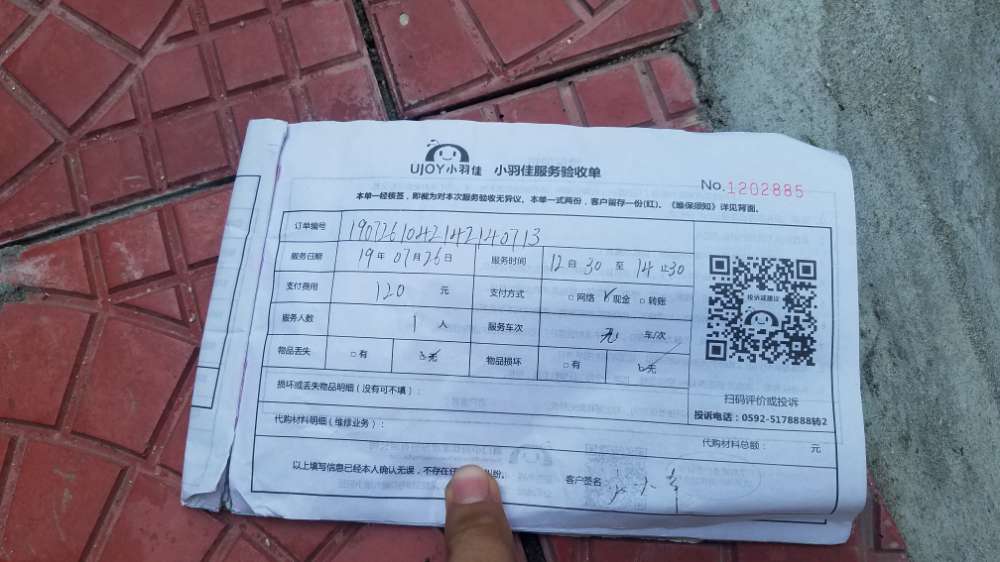 UJOY小羽佳 小羽佳服务验收单
No.1202885
本单一经核签，即视为对本次服务验收无异议。本单一式两份，客户留存一份(红)。《维保须知》详见背面。
订单编号 1907261042142140713
服务日期 19年07月26日 服务时间 12时30至14时30
支付费用 120元 支付方式 □网络 √现金 □转账
服务人数 1人 服务车次 无 车/次
物品丢失 □有 √无 物品损坏 □有 √无
投诉或建议
扫码评价或投诉
投诉电话：0592-5178888转2
损坏或丢失物品明细（没有可不填）：
代购材料明细（维修业务）： 代购材料总额： 元
以上填写信息已经本人确认无误，不存在任 纠纷。 客户签名